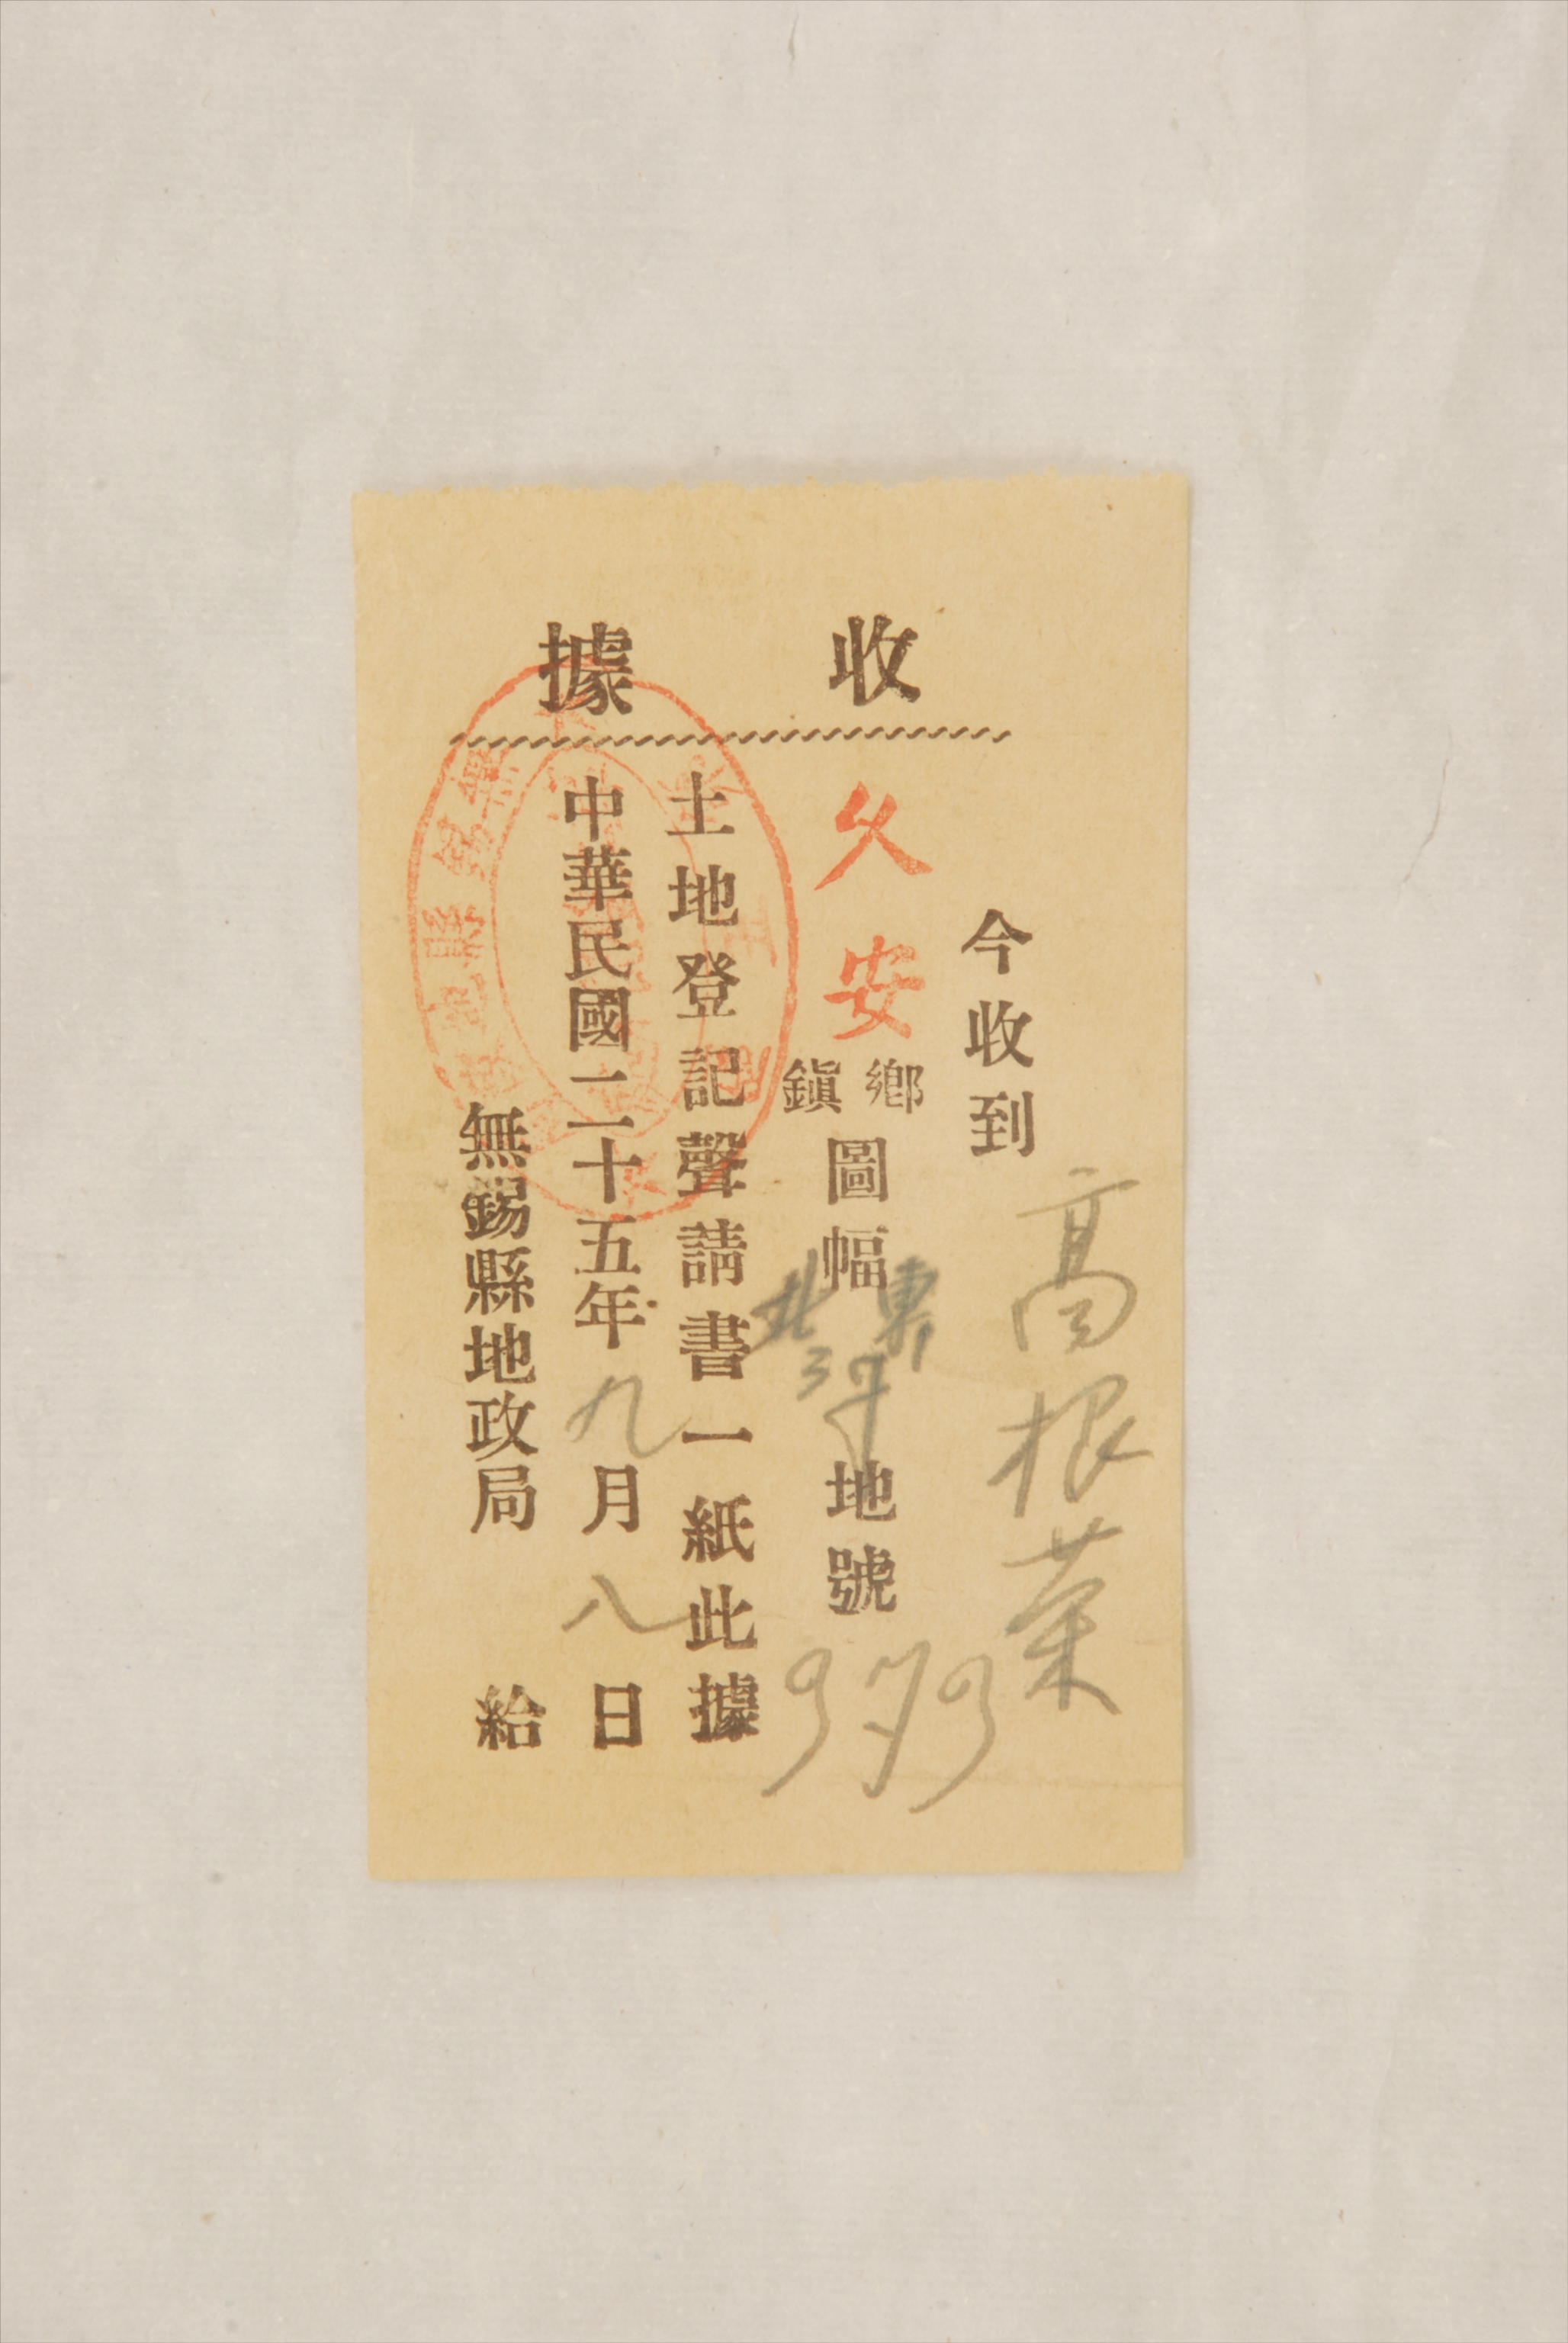 收據
今收到高根榮
久安鄉鎮圖幅東1北37地號979
土地登記聲請書一紙此據
中華民國二十五年九月八日
無錫縣地政局給